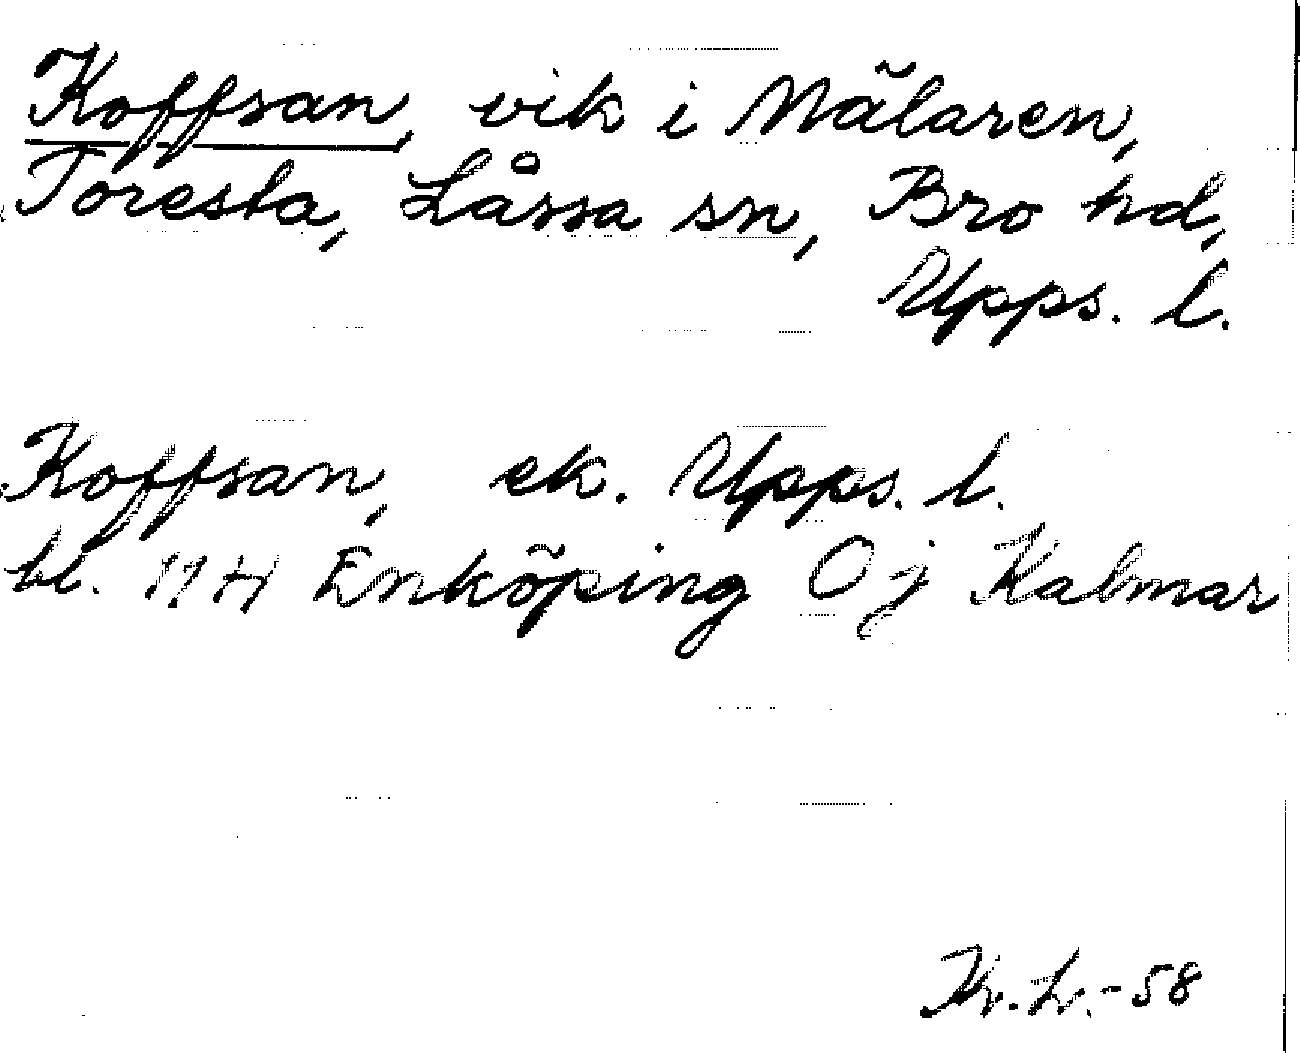 Koffsan, vik i Mälaren,
Toresta, Låssa sn, Bro hd,
Upps. l.
Koffsan, ek. Upps. l.
bl. 11 H Enköping Oj Kalmar
-58